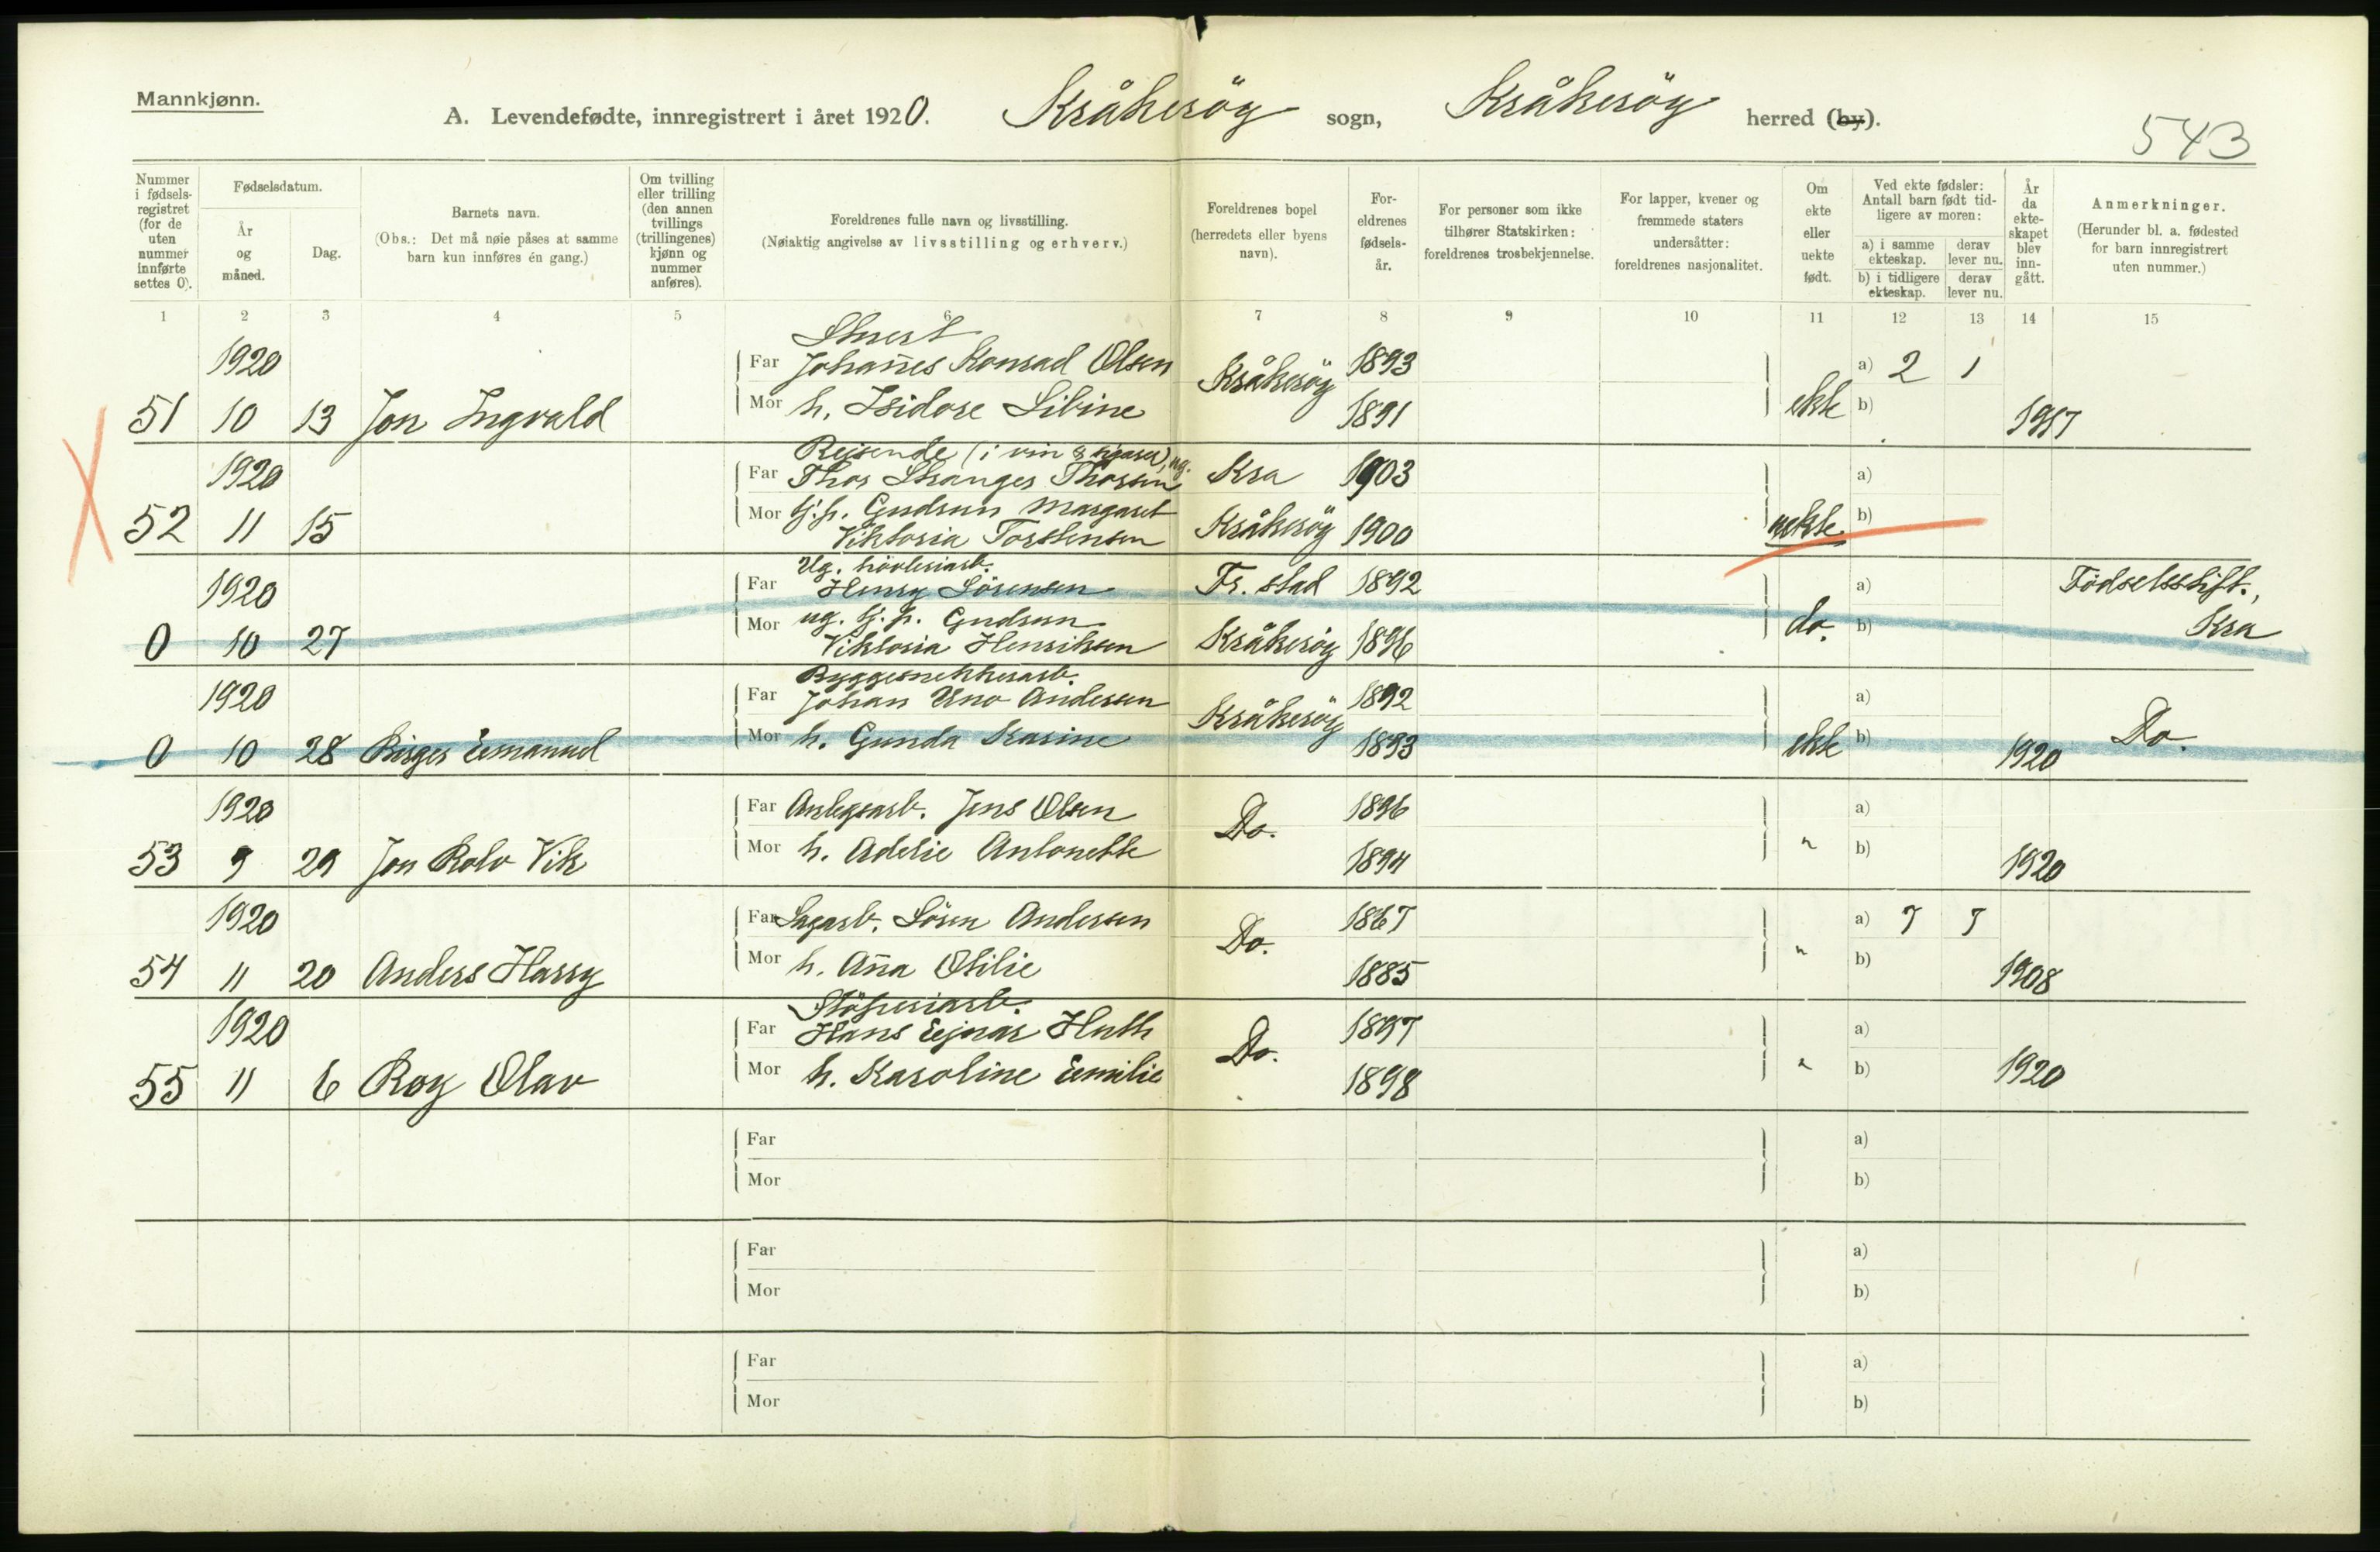 Mannkjønn.
A. Levendefødte, innregistrert i året 1920. Kråkeröy sogn, Kråkeröy herred (by).
543
Nummer i fødsels-registret (for de uten nummer innførte settes 0).
Fødselsdatum.
År og måned.
Dag.
Barnets navn.
(Obs.: Det må nøie påses at samme barn kun innføres én gang.)
Om tvilling eller trilling (den annen tvillings (trillingenes) kjønn og nummer anføres).
Foreldrenes fulle navn og livsstilling.
(Nøiaktig angivelse av livsstilling og erhverv.)
Foreldrenes bopel (herredets eller byens navn).
For-eldrenes fødsels-år.
For personer som ikke tilhører Statskirken: foreldrenes trosbekjennelse.
For lapper, kvener og fremmede staters undersåtter: foreldrenes nasjonalitet.
Om ekte eller uekte født.
Ved ekte fødsler: Antall barn født tid-ligere av moren:
a) i samme ekteskap.
derav lever nu.
b) i tidligere ekteskap.
derav lever nu.
År da ekte-skapet blev inn-gått.
Anmerkninger.
(Herunder bl. a. fødested for barn innregistrert uten nummer.)
1 2 3 4 5 6 7 8 9 10 11 12 13 14 15
Stuert
1920 Far Johan̄es Konrad Olsen Kråkeröy 1893 a) 2 1
51 10 13 Jon Ingvald Mor h. Isidore Libine 1891 ekte b) 1917
Reisende (i vin & sigarer), ug.
1920 Far Thor Stranger Thorsen Kra 1903 a)
52 11 15 Mor tj.p. Gudrun Margaret Kråkeröy 1900 uekte b)
Viktoria Torstensen
Ug. hövleriarb.
1920 Far Henry Sörensen Fr. stad 1892 a) Födselsstift.,
0 10 27 Mor ug. tj. p. Gudrun Kråkeröy 1896 do. b) Kra
Viktoria Henriksen
Byggesnekkerarb.
1920 Far Johan Uno Andersen Kråkeröy 1892 a)
0 10 28 Birger Emanuel Mor h. Gunda Karine 1893 ekte b) 1920 Do.
1920 Far Anlegsarb. Jens Olsen Do. 1896 a)
53 9 29 Jon Rolv Vik Mor h. Adelie Antonette 1894 " b) 1920
1920 Far Sagarb. Sören Andersen Do. 1867 a) 7 7
54 11 20 Anders Harry Mor h. An̄a Otilie 1885 " b) 1908
Stöperiarb.
1920 Far Hans Ejnar Huth Do. 1897 a)
55 11 6 Roy Olav Mor h. Karoline Emilie 1898 " b) 1920
Far a)
Mor b)
Far a)
Mor b)
Far a)
Mor b)